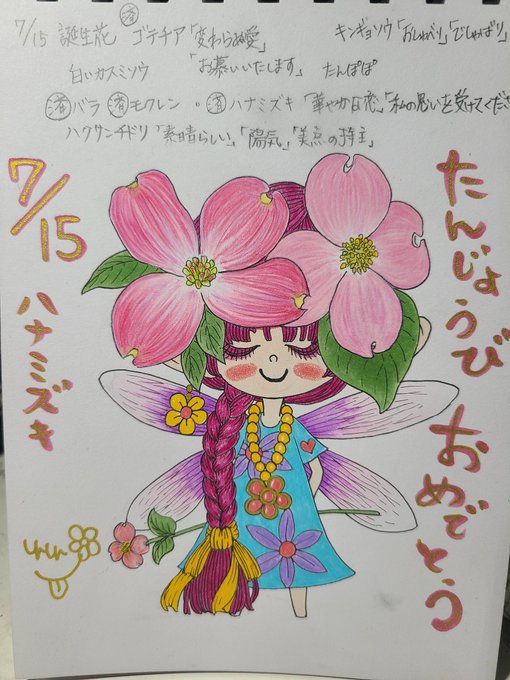 7/15 誕生花 済 ゴデチア「変わらぬ愛」 キンギョソウ「おしゃべり」「でしゃばり」
白いカスミソウ 「お慕いいたします」 たんぽぽ
済 バラ 済 モクレン ・ 済 ハナミズキ 「華やかな恋」「私の思いを受けてくださ
ハクサンチドリ 「素晴らしい」「陽気」「美点の持主」
7/15 ハナミズキ
たんじょうび おめでとう